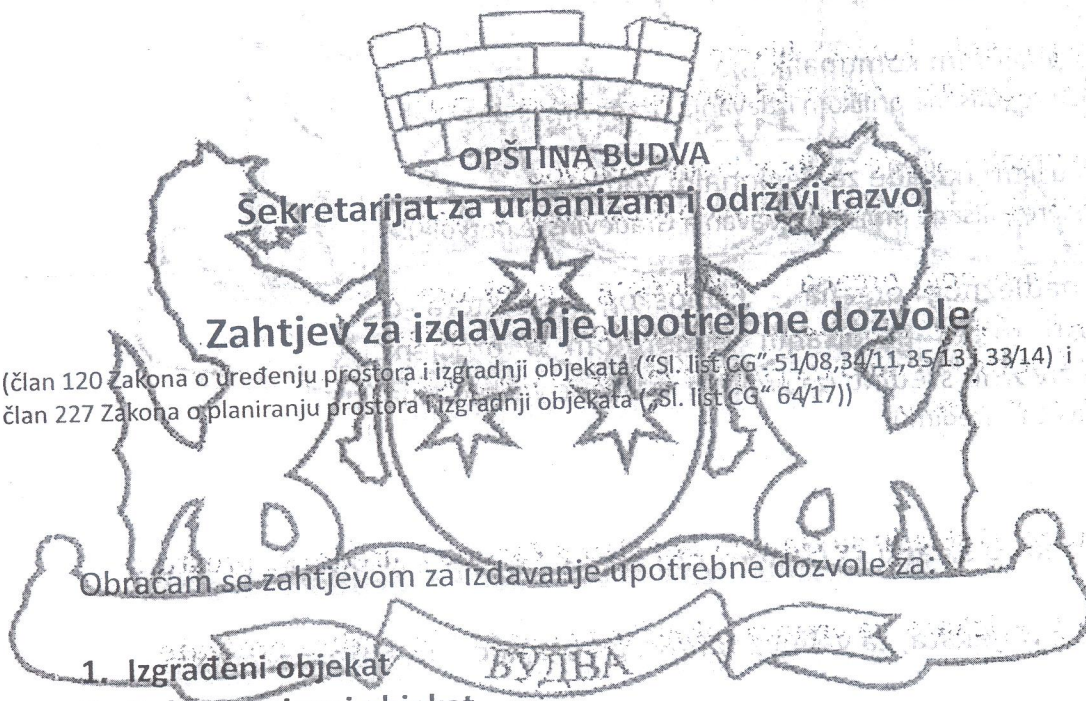 OPŠTINA BUDVA
Sekretarijat za urbanizam i održivi razvoj
Zahtjev za izdavanje upotrebne dozvole
(član 120 Zakona o uređenju prostora i izgradnji objekata (“Sl. list CG“ 51/08,34/11,35/13 i 33/14) i
član 227 Zakona o planiranju prostora i izgradnji objekata („Sl. list CG“ 64/17))
Obraćam se zahtjevom za izdavanje upotrebne dozvole za:
1. Izgrađeni objekat
БУДВА